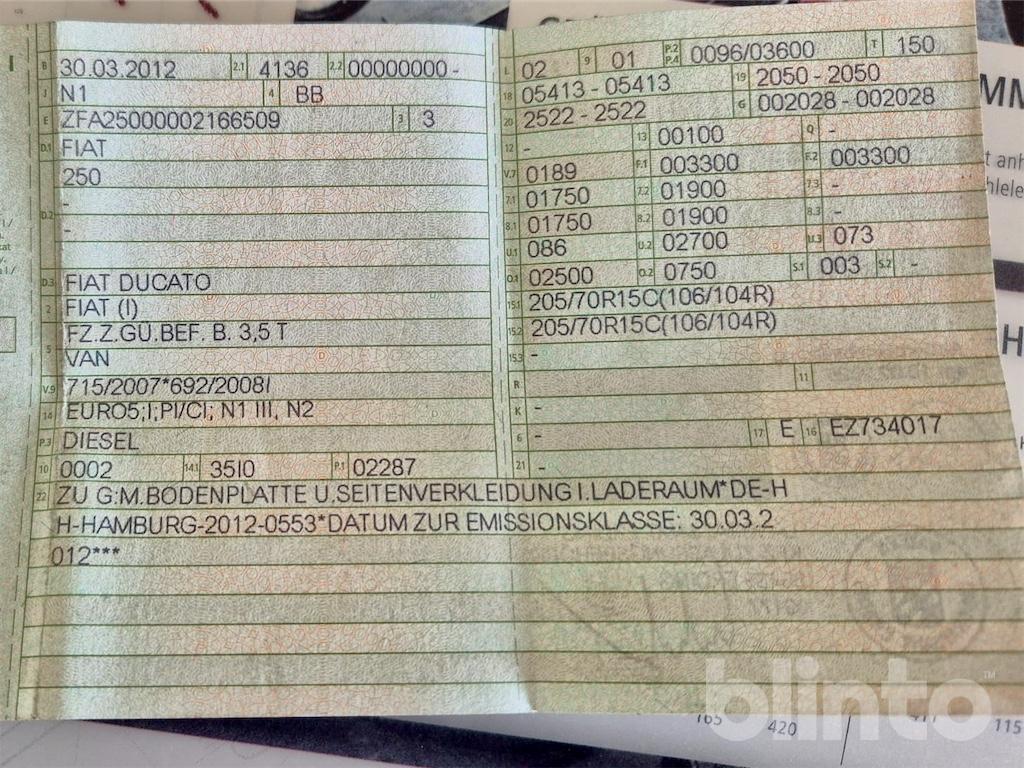 B 30.03.2012 2.1 4136 2.2 00000000 -
J N1 4 BB
E ZFA25000002166509 3 3
D.1 FIAT
250
-
D.2 -
D.3 FIAT DUCATO
2 FIAT (I)
FZ.Z.GÜ.BEF. B. 3,5 T
5 VAN
V.9 715/2007*692/2008I
14 EURO5;I;PI/CI; N1 III, N2
P.3 DIESEL
10 0002 14.1 35I0 P.1 02287
L 02 9 01 P.2 P.4 0096/03600 T 150
18 05413 - 05413 19 2050 - 2050
20 2522 - 2522 G 002028 - 002028
12 - 13 00100 Q -
V.7 0189 F.1 003300 F.2 003300
7.1 01750 7.2 01900 7.3 -
8.1 01750 8.2 01900 8.3 -
U.1 086 U.2 02700 U.3 073
O.1 02500 O.2 0750 S.1 003 S.2 -
15.1 205/70R15C(106/104R)
15.2 205/70R15C(106/104R)
15.3 -
R 11
K -
6 - 17 E 16 EZ734017
21 -
22 ZU G:M.BODENPLATTE U.SEITENVERKLEIDUNG I.LADERAUM*DE-H
H-HAMBURG-2012-0553*DATUM ZUR EMISSIONSKLASSE: 30.03.2
012***
blinto™
165 420 115